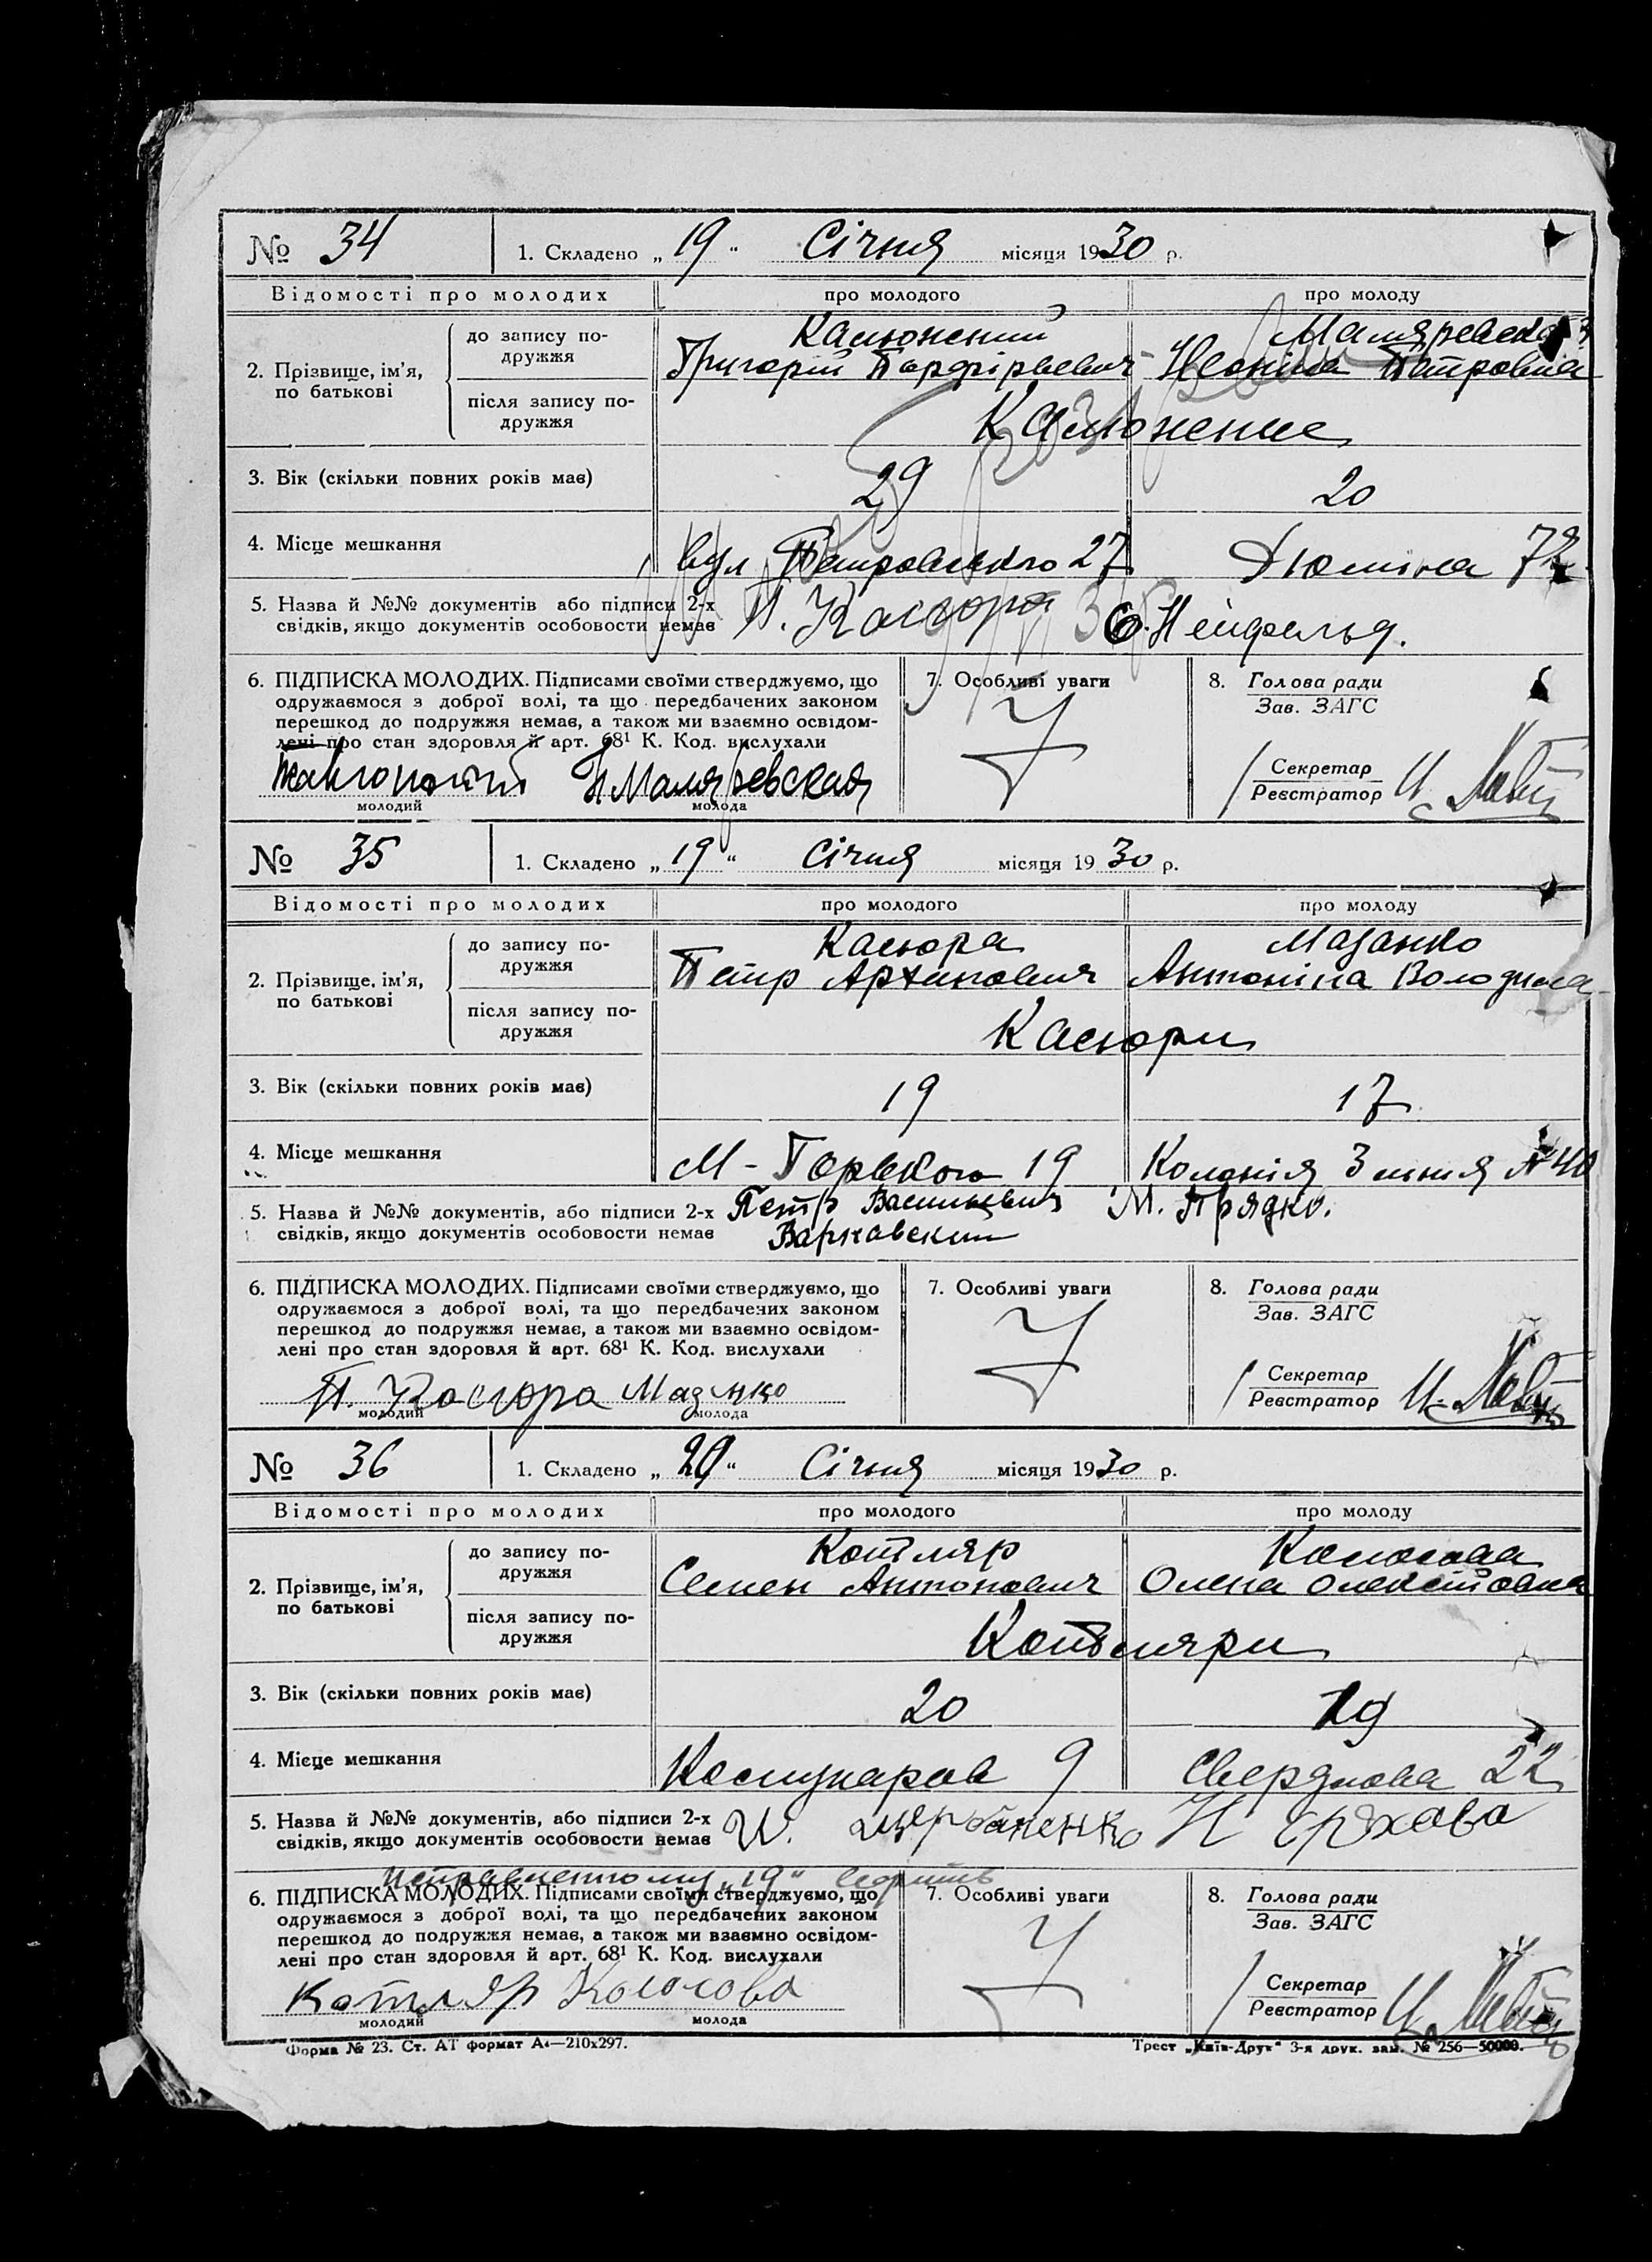 № 34 1. Складено „ 19 “ Січня місяця 1930 р.
Відомості про молодих про молодого про молоду
2. Прізвище, ім’я, по батькові
до запису подружжя
Григорій Петровна
після запису подружжя
3. Вік (скільки повних років має) 29 20
4. Місце мешкання вул Петровського 27 Дюміна 72
5. Назва й №№ документів або підписи 2-х П. Касюра Нейфельд.
свідків, якщо документів особовости немає
6. ПІДПИСКА МОЛОДИХ. Підписами своїми стверджуємо, що
одружаємося з доброї волі, та що передбачених законом
перешкод до подружжя немає, а також ми взаємно освідом-
лені про стан здоровля й арт. 68¹ К. Код. вислухали
Н Маляревская
молодий молода
7. Особливі уваги
8. Голова ради
Зав. ЗАГС
Секретар
Реєстратор
№ 35 1. Складено „ 19 “ Січня місяця 1930 р.
Відомості про молодих про молодого про молоду
2. Прізвище, ім’я, по батькові
до запису подружжя
Касюра Мазанко
Петр Архипович Антоніна
після запису подружжя
Касюри
3. Вік (скільки повних років має) 19 17
4. Місце мешкання М-Горького 19 Колонія 3 лінія № 40
5. Назва й №№ документів, або підписи 2-х Петр Васильевич М. Прядко.
свідків, якщо документів особовости немає
6. ПІДПИСКА МОЛОДИХ. Підписами своїми стверджуємо, що
одружаємося з доброї волі, та що передбачених законом
перешкод до подружжя немає, а також ми взаємно освідом-
лені про стан здоровля й арт. 68¹ К. Код. вислухали
П. Касюра
молодий молода
7. Особливі уваги
8. Голова ради
Зав. ЗАГС
Секретар
Реєстратор
№ 36 1. Складено „ “ Січня місяця 1930 р.
Відомості про молодих про молодого про молоду
2. Прізвище, ім’я, по батькові
до запису подружжя
Котляр Колосова
Семен Антонович Олена
після запису подружжя
Котляри
3. Вік (скільки повних років має) 20 19
4. Місце мешкання Комунарів 9 Свердлова 22
5. Назва й №№ документів, або підписи 2-х
свідків, якщо документів особовости немає
Исправленному „19“ верить
6. ПІДПИСКА МОЛОДИХ. Підписами своїми стверджуємо, що
одружаємося з доброї волі, та що передбачених законом
перешкод до подружжя немає, а також ми взаємно освідом-
лені про стан здоровля й арт. 68¹ К. Код. вислухали
Котляр Колосова
молодий молода
7. Особливі уваги
8. Голова ради
Зав. ЗАГС
Секретар
Реєстратор
Форма № 23. Ст. АТ формат А4—210х297. Трест „Київ-Друк“ 3-я друк. зам. № 256—50000.